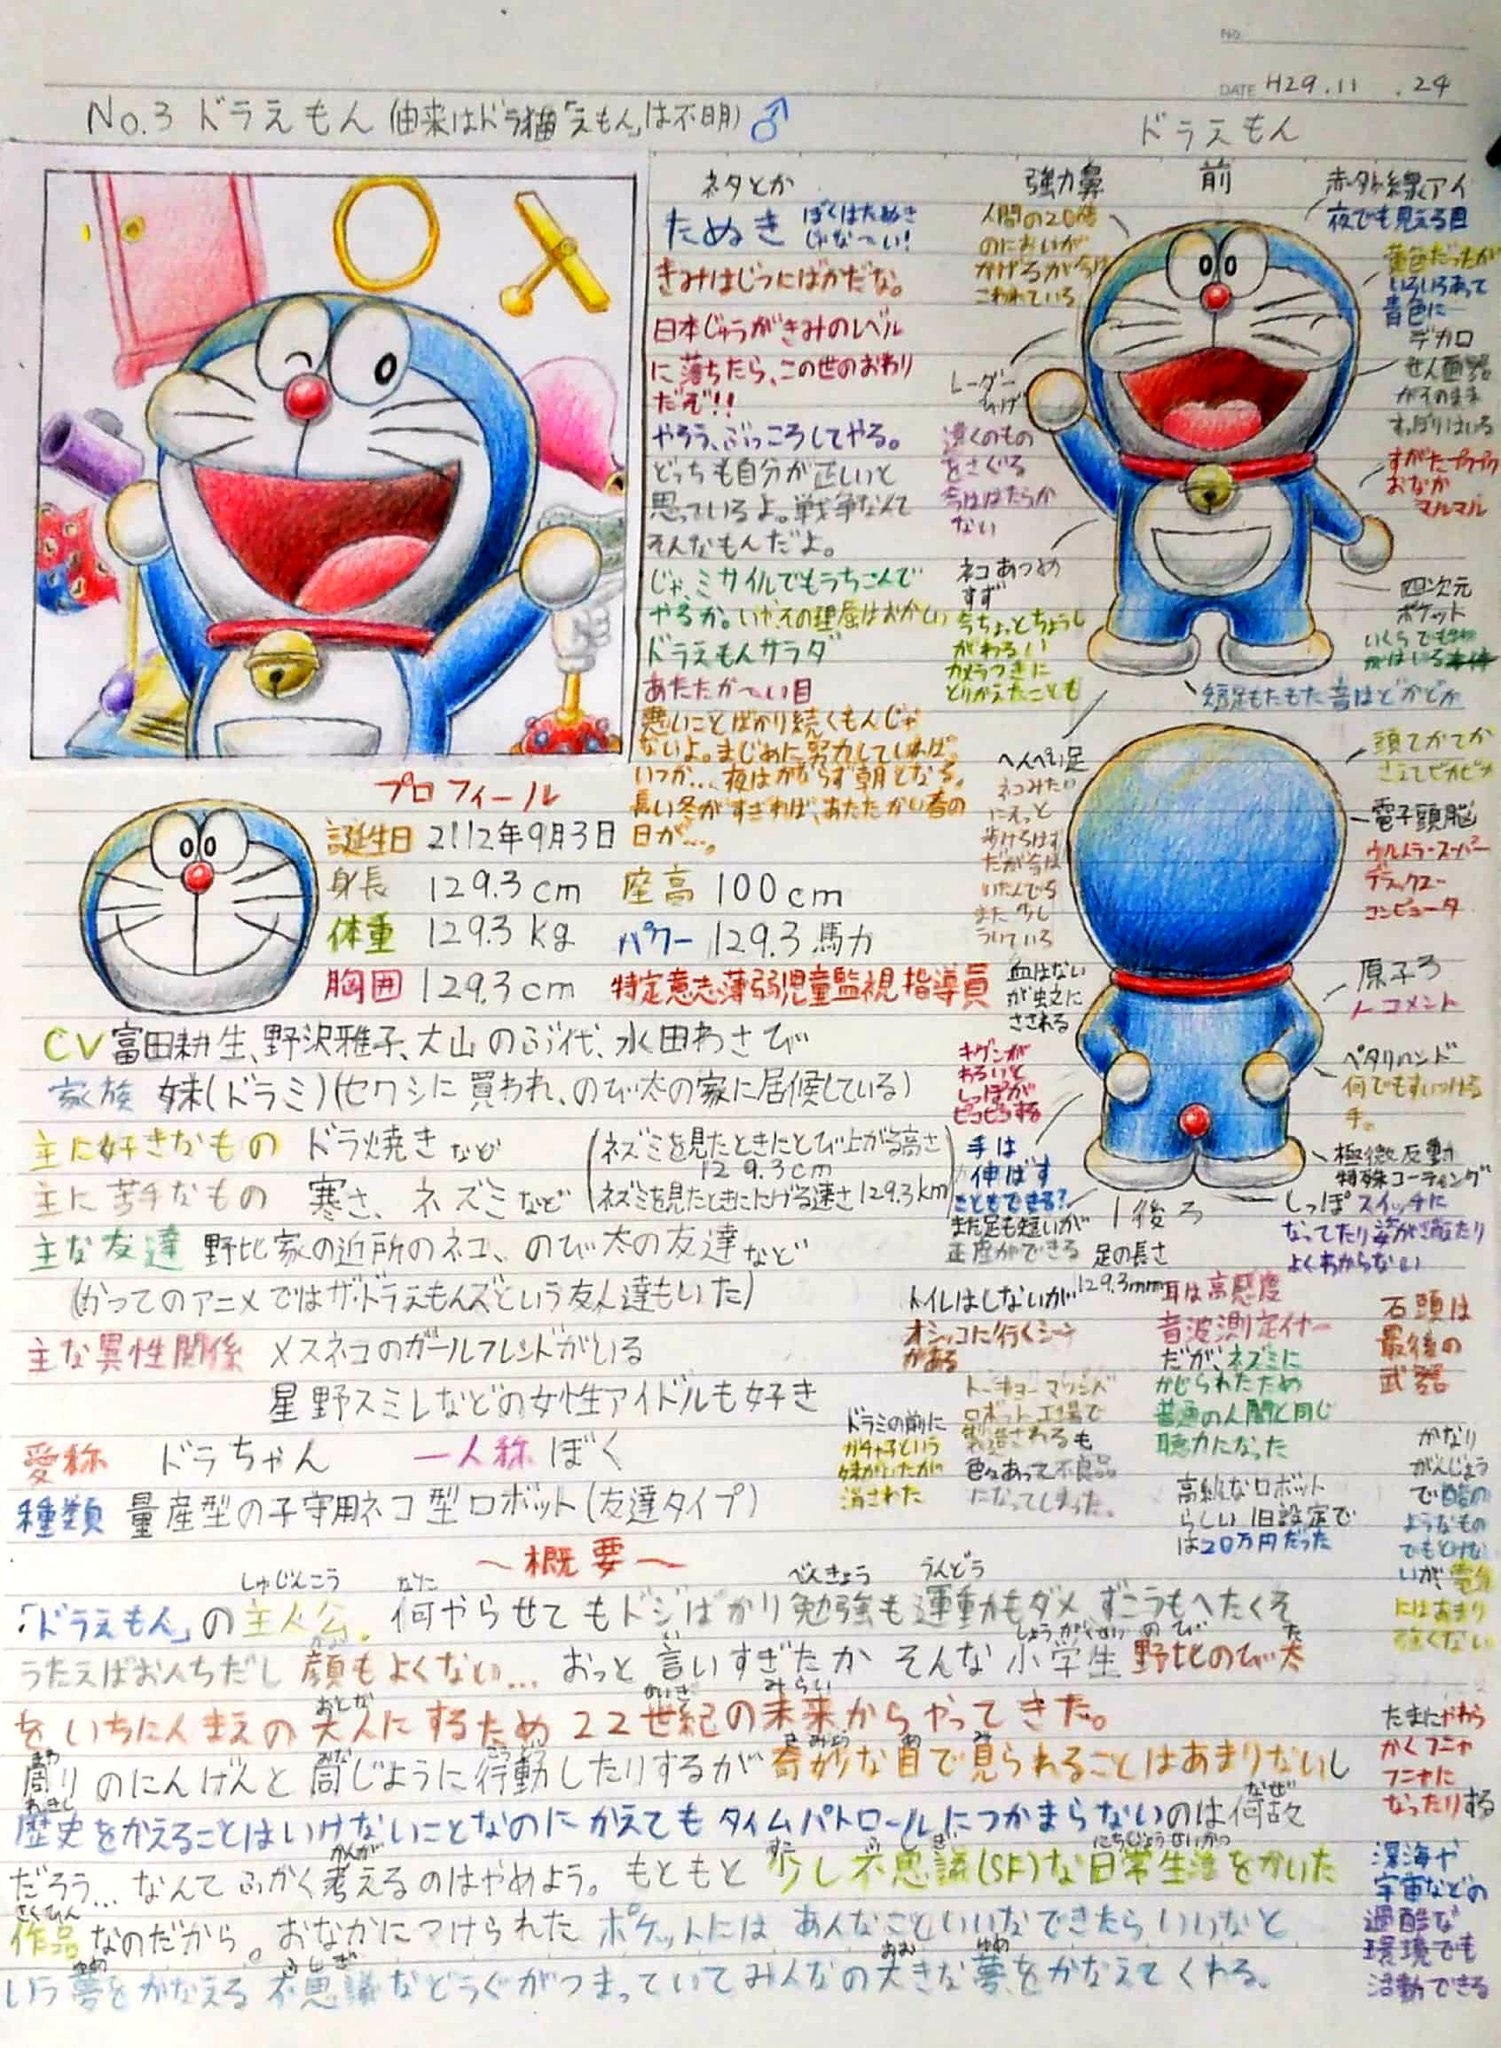 No.
DATE H29.11 .24
No.3 ドラえもん(由来はドラ猫「えもん」は不明)♂
ドラえもん
ネタとか
たぬき ぼくはたぬき
じゃな〜い!
きみはじつにばかだな。
日本じゅうがきみのレベル
に落ちたら、この世のおわり
だぞ!!
やろう、ぶっころしてやる。
どっちも自分が正しいと
思っているよ。戦争なんて
そんなもんだよ。
じゃ、ミサイルでもうちこんで
やるか。いやその理屈はおかしい
ドラえもんサラダ
あたたか〜い目
悪いことばかり続くもんじゃ
ないよ。まじめに努力していれば。
いつか…、夜はかならず朝となる。
長い冬がすぎれば、あたたかい春の
日が…。
強力鼻
人間の20倍
のにおいが
かげるが今は
こわれている
レーダー
ひげ
遠くのもの
をさぐる
今ははたらか
ない
ネコあつめ
すず
今ちょっとちょうし
がわるい
カメラつきに
とりかえたことも
へんぺい足
ネコみたい
にそっと
歩けるはず
だが今は
いたんでる
また少し
ういている
血はない
が蚊に
さされる
キゲンが
わるいと
しっぽが
ピコピコする
手は
伸ばす
こともできる?
また足も短いが
正座ができる
前
赤外線アイ
夜でも見える目
黄色だったが
いろいろあって
青色に
デカ口
せん面器
がそのまま
すっぽりはいる
すがたプクプク
おなか
マルマル
四次元
ポケット
いくらでも物
がはいる
短足もたもた音はどかどか
頭てかてか
さえてピカピカ
電子頭脳
ウルトラ・スーパー
デラックス
コンピュータ
原子ろ
ノーコメント
ペタリハンド
何でもすいつける
手。
極微反動
特殊コーティング
↑後ろ
足の長さ
129.3mm
しっぽ スイッチに
なってたり姿が消えたり
よくわからない
プロフィール
誕生日 2112年9月3日
身長 129.3cm 座高 100cm
体重 129.3kg パワー 129.3馬力
胸囲 129.3cm 特定意志薄弱児童監視指導員
CV 富田耕生、野沢雅子、大山のぶ代、水田わさび
家族 妹(ドラミ)(セワシに買われ、のび太の家に居候している)
主に好きなもの ドラ焼きなど
主に苦手なもの 寒さ、ネズミなど
(ネズミを見たときにとび上がる高さ
129.3cm
ネズミを見たときににげる速さ129.3km)
主な友達 野比家の近所のネコ、のび太の友達など
(かつてのアニメではザ・ドラえもんズという友人達もいた)
主な異性関係 メスネコのガールフレンドがいる
星野スミレなどの女性アイドルも好き
愛称 ドラちゃん 一人称 ぼく
種類 量産型の子守用ネコ型ロボット(友達タイプ)
トイレはしないが
オシッコに行くシーン
がある
ドラミの前に
ガチャ子という
妹がいたが
消された
トーキョーマツシバ
ロボット工場で
製造されるも
色々あって不良品
になってしまった。
耳は高感度
音波測定イヤー
だが、ネズミに
かじられたため
普通の人間と同じ
聴力になった
高級なロボット
らしい 旧設定で
は20万円だった
石頭は
最後の
武器
かなり
がんじょう
で酸の
ようなもの
でもとけな
いが、電気
にはあまり
強くない
たまにやわら
かくフニャ
フニャに
なったりする
深海や
宇宙などの
過酷な
環境でも
活動できる
〜概要〜
しゅじんこう なに べんきょう うんどう
「ドラえもん」の主人公。何やらせてもドジばかり勉強も運動もダメずこうもへたくそ
うたえばおんちだし 顔もよくない… おっと 言いすぎたか そんな 小学生 野比のび太
をいちにんまえの大人にするため22世紀の未来からやってきた。
周りのにんげんと同じように行動したりするが奇妙な目で見られることはあまりないし
歴史をかえることはいけないことなのにかえてもタイムパトロールにつかまらないのは何故
だろう…なんてふかく考えるのはやめよう。もともと少し不思議(SF)な日常生活をかいた
作品なのだから。おなかにつけられたポケットにはあんなこといいなできたらいいなと
いう夢をかなえる不思議などうぐがつまっていてみんなの大きな夢をかなえてくれる。